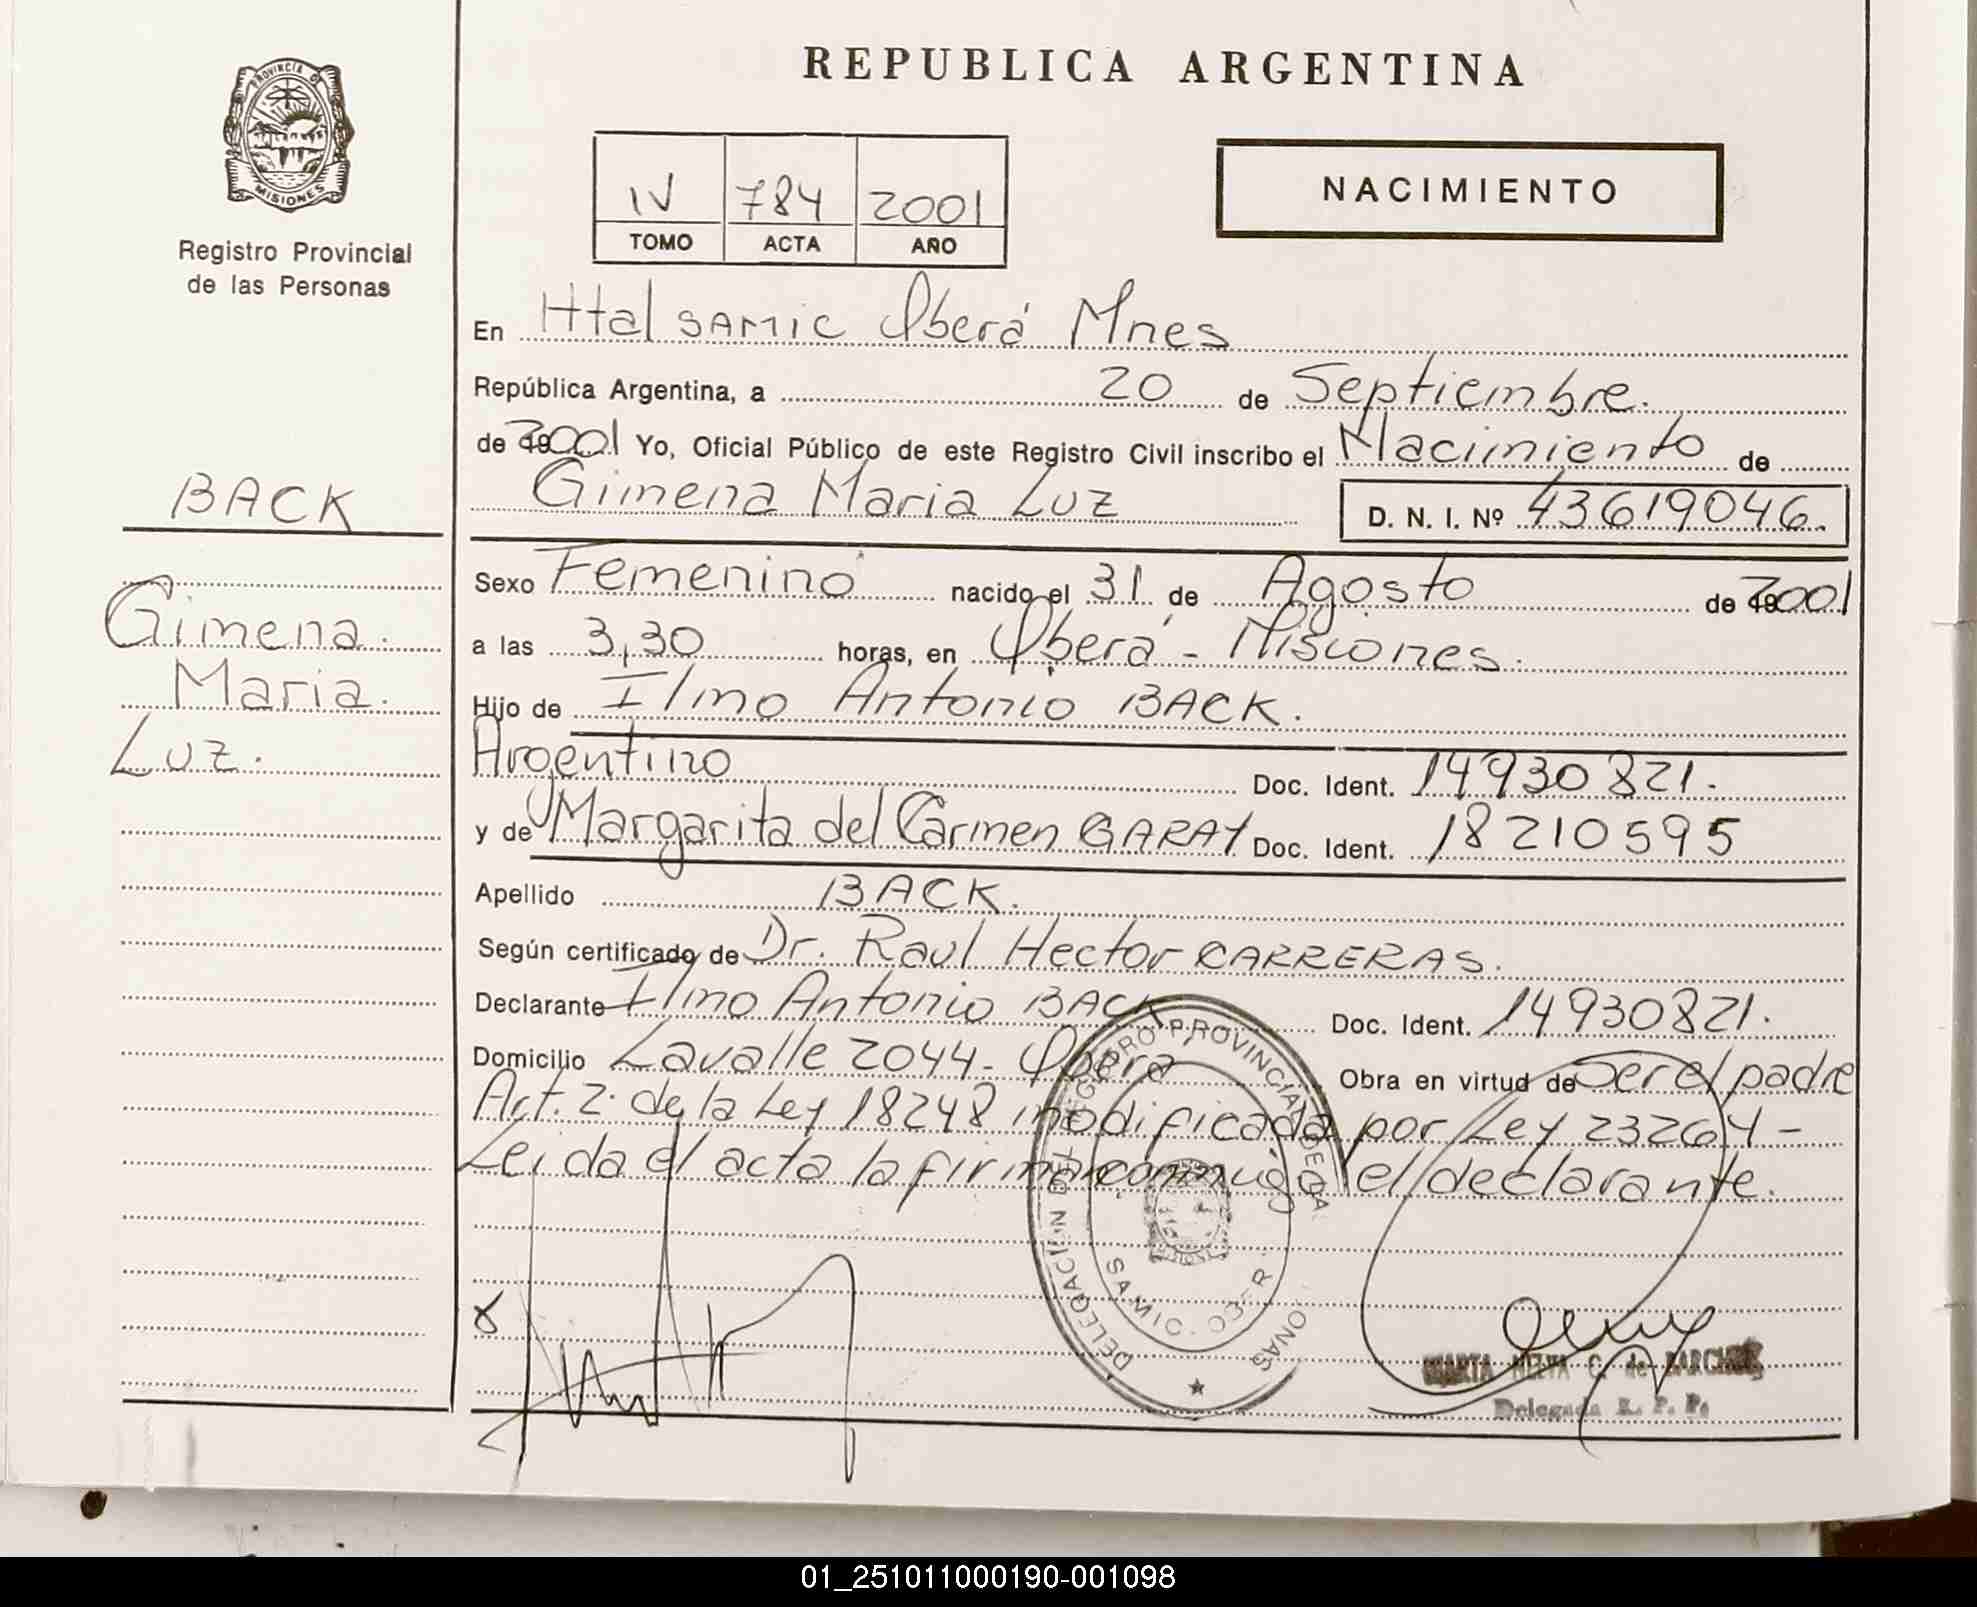 PROVINCIA D
MISIONES
Registro Provincial
de las Personas
BACK
Gimena.
Maria.
Luz.
REPUBLICA ARGENTINA
IV 784 2001
TOMO ACTA AÑO
NACIMIENTO
En Htal SAMIC Oberá Mnes
República Argentina, a 20 de Septiembre.
de 2001 Yo, Oficial Público de este Registro Civil inscribo el Nacimiento de
Gimena Maria Luz D. N. I. Nº 43619046.
Sexo Femenino nacido el 31 de Agosto de 2001
a las 3,30 horas, en Oberá - Misiones.
Hijo de Ilmo Antonio BACK.
Argentino Doc. Ident. 14930821.
y de Margarita del Carmen GARAY Doc. Ident. 18210595
Apellido BACK.
Según certificado de Dr. Raul Hector CARRERAS.
Declarante Ilmo Antonio BACK Doc. Ident. 14930821.
Domicilio Lavalle 2044 - Oberá Obra en virtud de Ser el padre
Art. 2. de la Ley 18248 modificada por Ley 23264 -
Leida el acta la firma conmigo el declarante.
DELEGACION DEL REGISTRO PROVINCIAL DE LA
SAMIC
Delegada R. P. P.
01_251011000190-001098